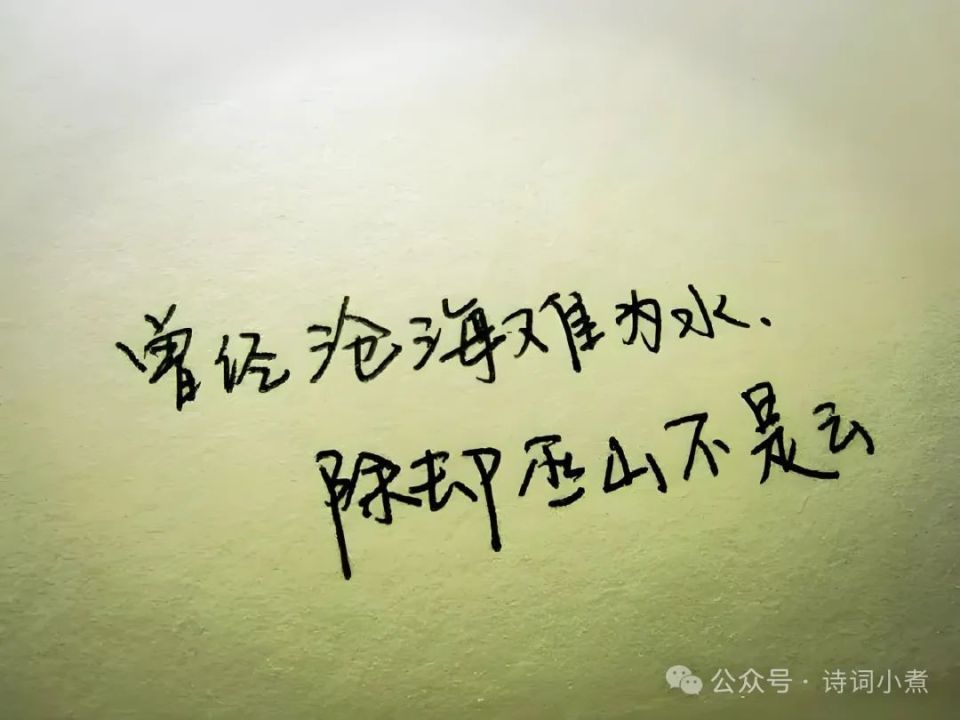 曾经沧海难为水、
除却巫山不是云
公众号·诗词小煮